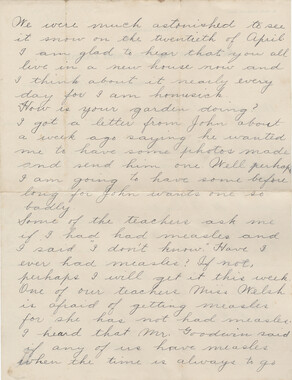 We were much astonished to see
it snow on the twentieth of April
I am glad to hear that you all
live in a new house now and
I think about it nearly every
day for I am homesick.
How is your garden doing?
I got a letter from John about
a week ago saying he wanted
me to have some photos made
and send him one Well perhaps
I am going to have some before
long for John wants one so
badly
Some of the teachers ask me
if I had had measles and
I said "I don't know." Have I
ever had measles? If not,
perhaps I will get it this week
One of our teachers Miss Welsh
is afraid of getting measles
for she has not had measles
I heard that Mr. Goodwin said
if any of us have measles
when the time is always to go